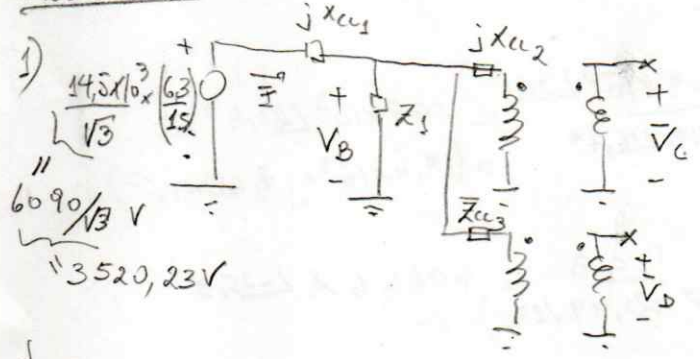 1)
14,5x10³/√3 x (6,3/15)
"
6090/√3 V
" 3520,23V
+
-
Ī
jXcc1
+
V_B
-
Z1
jXcc2
Z̄cc3
+
V̄_C
-
+
V̄_D
-